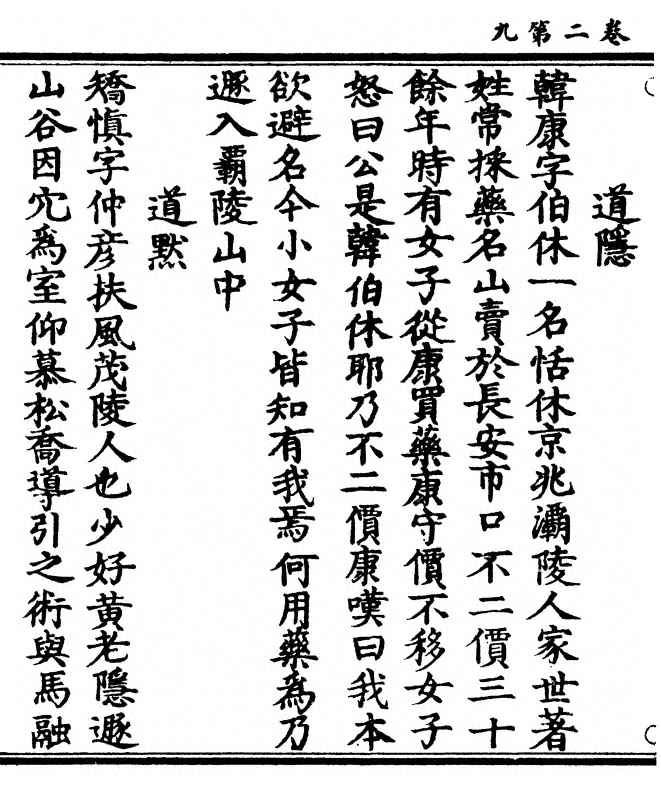 卷二第九
道隱
韓康字伯休一名恬休京兆灞陵人家世著
姓常採藥名山賣於長安市口不二價三十
餘年時有女子從康買藥康守價不移女子
怒曰公是韓伯休耶乃不二價康嘆曰我本
欲避名今小女子皆知有我焉何用藥為乃
遯入霸陵山中
道默
矯慎字仲彦扶風茂陵人也少好黃老隱遯
山谷因穴爲室仰慕松喬導引之術與馬融